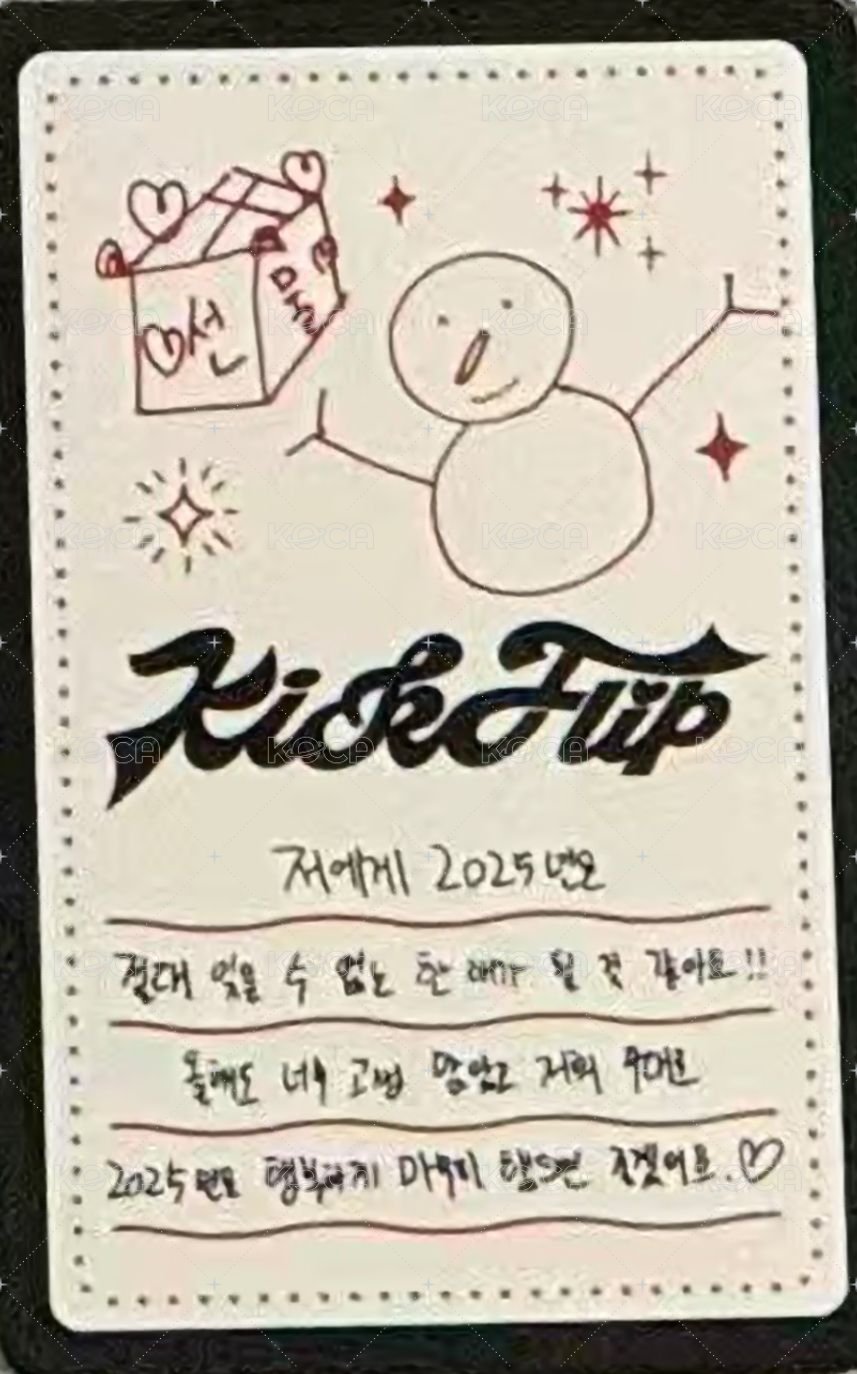 선물
KickFlip
저에게 2025년은
절대 잊을 수 없는 한 해가 될 것 같아요!!
올해도 너무 고생 많았고 저희 위프도
2025년도 행복하게 마무리 했으면 좋겠어요.♡
KOCA